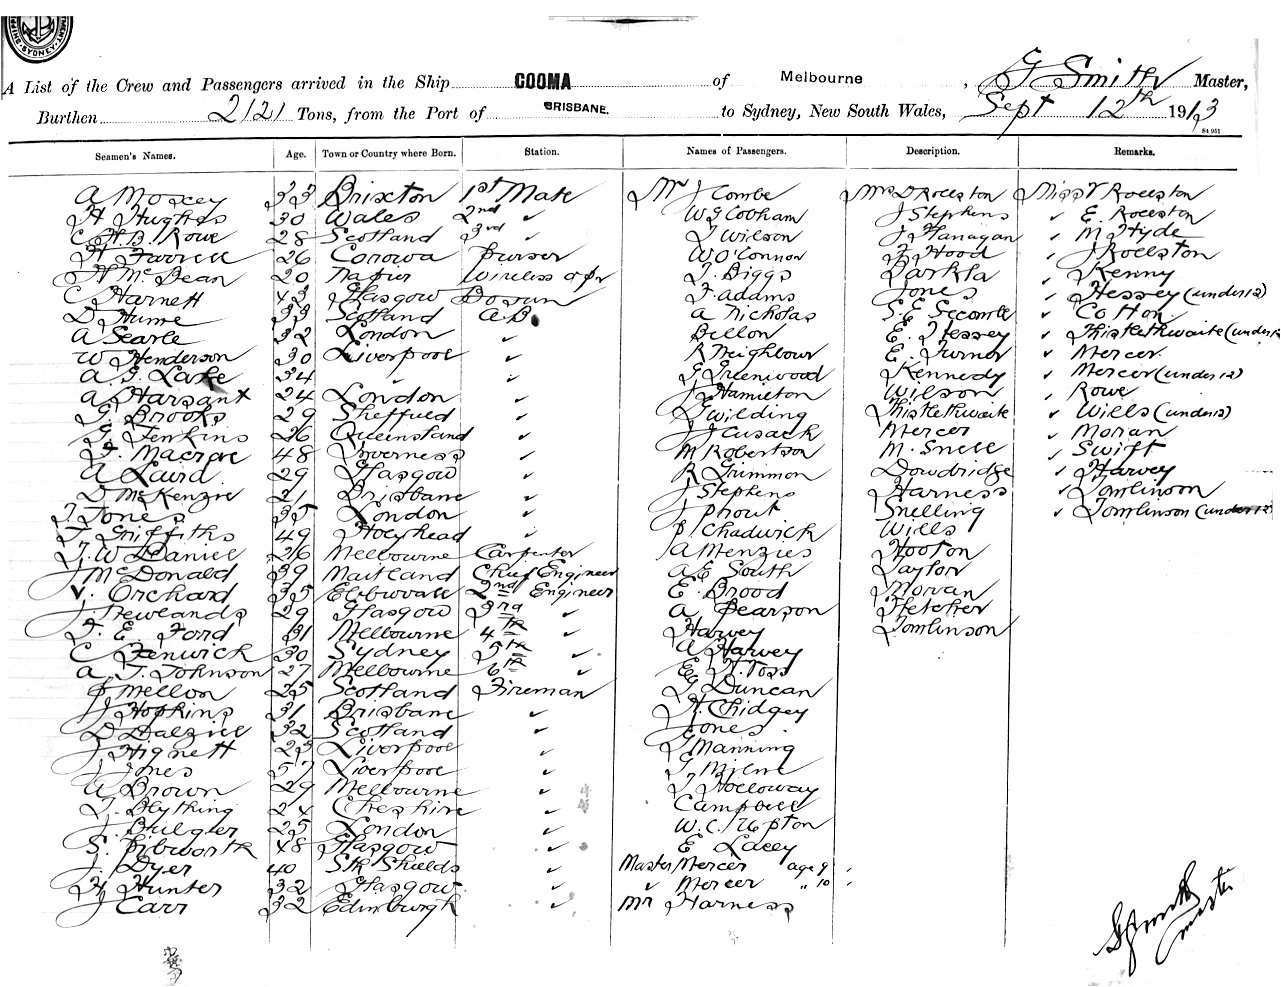 SYDNEY
A List of the Crew and Passengers arrived in the Ship COOMA of Melbourne , G Smith Master,
Burthen 2121 Tons, from the Port of BRISBANE. to Sydney, New South Wales, Sept 12th 1913
Seamen's Names. Age. Town or Country where Born. Station. Names of Passengers. Description. Remarks.
A Moxey 33 Brixton 1st Mate Mr J Combe Mrs D Rolston Miss V Rolston
H Hughes 30 Wales 2nd ✓ W G Cobham J Stephens ✓ E. Rolston
C. H. B. Rowe 28 Scotland 3rd ✓ J Wilson J Flanagan ✓ M Hyde
H Farrell 26 Corowa Purser W O'Connor F Hood ✓ J Rolston
H McBean 20 Napier Wireless opr T. Biggs Darkla ✓ Kenny
C Harnett 43 Glasgow Bosun F. Adams Jones ✓ Hessey (under 12)
D Hume 33 Scotland A.B. A Nicholas S. E. Secombe ✓ Cotton
A Searle 32 London ✓ Dillon E. Hessey ✓ Thistlethwaite (under 12
W Henderson 30 Liverpool ✓ R Neighbour E. Turner ✓ Mercer
A. G. Lake 34 " ✓ G Greenwood Kennedy ✓ Mercer (under 12)
A Harsant 24 London ✓ J Hamilton Wilson ✓ Rowe
G. Brooks 29 Sheffield ✓ E Wilding Thistlethwaite ✓ Wills (under 12)
G. Jenkins 26 Queensland ✓ J J Cusack Mercer ✓ Moran
F. Macrae 48 Inverness ✓ M Robertson M. Snell ✓ Swift
A Laird 29 Glasgow ✓ R Grimmon Dowdridge ✓ Harvey
D McKenzie 21 Brisbane ✓ J Stephens Harness ✓ Tomlinson
J. Jones 35 London ✓ J Prout Snelling ✓ Tomlinson (under 12
T. Griffiths 49 Holyhead ✓ P Chadwick Wills
T. W Daniel 26 Melbourne Carpenter A Menzies Hooton
J McDonald 39 Maitland Chief Engineer A E South Taylor
V. Orchard 35 Ebbwvale 2nd Engineer E. Brood Morvan
J. Newlands 29 Glasgow 3rd ✓ A Pearson Fletcher
F. E. Ford 31 Melbourne 4th ✓ Harvey Tomlinson
C Fenwick 30 Sydney 5th ✓ A Harvey
A. J. Johnson 27 Melbourne 6th ✓ E H. Foss
J Mellon 25 Scotland Fireman J Duncan
J Hopkins 31 Brisbane ✓ H Chidgey
D Dalziel 32 Scotland ✓ Jones
J Hignett 23 Liverpool ✓ G Manning
J Jones 57 Liverpool ✓ G. Milne
A Brown 29 Melbourne ✓ J Holloway
T. Blything 24 Cheshire ✓ Campbell
J. Bulger 25 London ✓ W. C. Upton
S. Pibworth 48 Glasgow ✓ E Lacey
J Dyer 40 Sth Shields ✓ Master Mercer age 9 ,
H Hunter 32 Glasgow ✓ ✓ Mercer " 10 ,
J Carr 32 Edinburgh ✓ Mr Harness
G Smith
master